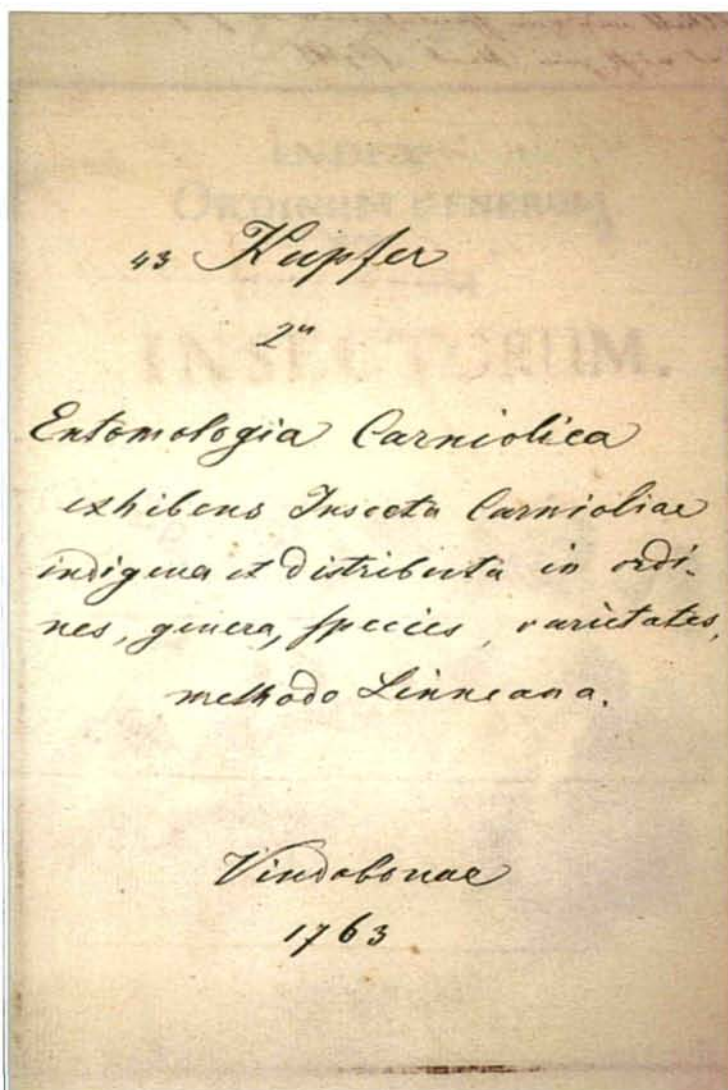 INDEX
ORDINUM GENERUM
INSECTORUM.
43 Kupfer
2"
Entomologia Carniolica
exhibens Insecta Carnioliae
indigena et distributa in ordi-
nes, genera, species, varietates,
methodo Linneana.
Vindobonae
1763